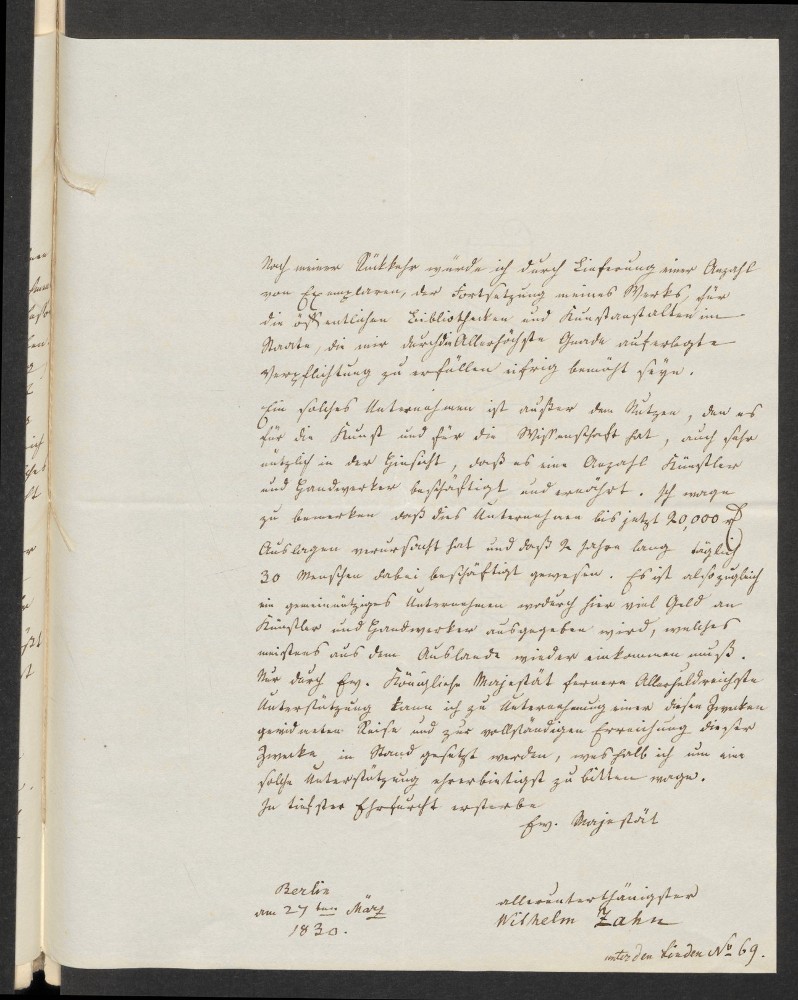 Nach meiner Rückkehr würde ich durch Lieferung einer Anzahl
von Exemplaren, der Fortsetzung meines Werks, für
die öffentlichen Bibliotheken und Kunstanstalten im
Staate, die mir durch die Allerhöchste Gnade auferlegte
Verpflichtung zu erfüllen eifrig bemüht seyn.
Ein solches Unternehmen ist außer dem Nutzen, den es
für die Kunst und für die Wissenschaft hat, auch sehr
nützlich in der Hinsicht, daß es eine Anzahl Künstler
und Handwerker beschäftigt und ernährt. Ich wage
zu bemerken daß dies Unternehmen bis jetzt 20,000
Auslagen verursacht hat und daß 2 Jahre lang täglich
30 Menschen dabei beschäftigt gewesen. Es ist also zugleich
ein gemeinnütziges Unternehmen wodurch hier viel Geld an
Künstler und Handwerker ausgegeben wird, welches
meistens aus dem Auslande wieder einkommen muß.
Nur durch Ew. Königliche Majestät fernere Allerhuldreichste
Unterstützung kann ich zu Unternehmung einer diesen Zwecken
gewidmeten Reise und zur vollständigen Erreichung dieser
Zwecke in Stand gesetzt werden, weshalb ich um eine
solche Unterstützung ehrerbietigst zu bitten wage.
In tiefster Ehrfurcht ersterbe
Ew. Majestät
Berlin
am 27ten März
1830.
allerunterthänigster
Wilhelm Zahn
unter den Linden No 69.